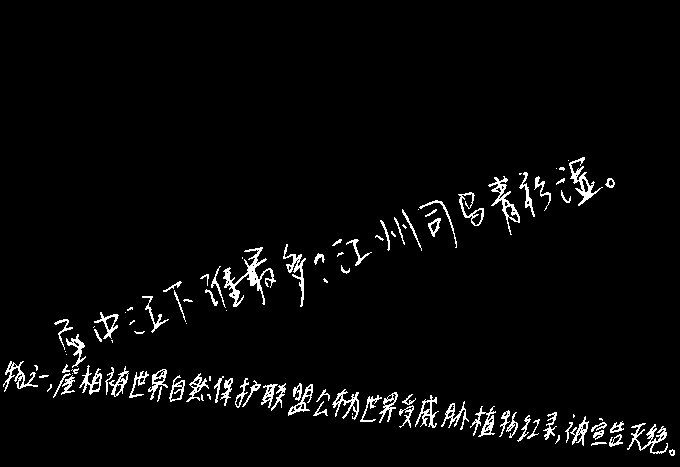 座中泣下谁最多?江州司马青衫湿。
物之一,崖柏被世界自然保护联盟公布为世界受威胁植物红录,被宣告灭绝。